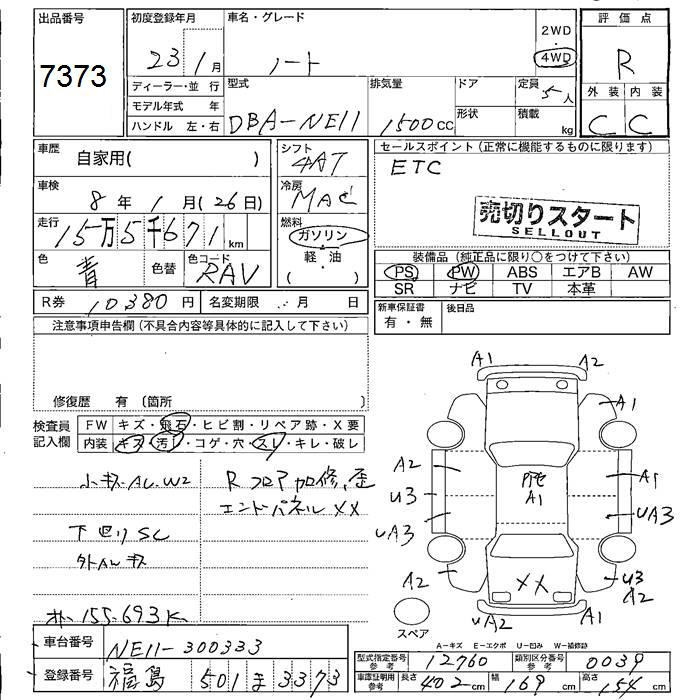 出品番号
7373
初度登録年月
23年1月
車名・グレード
ノート
2WD・
4WD
評価点
R
外装 内装
C C
ディーラー・並行
モデル年式 年
ハンドル 左・右
型式
DBA-NE11
排気量
1500cc
ドア
形状
定員
5人
積載
kg
車歴
自家用( )
車検
8年1月(26日)
走行
15万5千671km
色
青
色替
色コード
RAV
シフト
4AT
冷房
燃料
ガソリン
軽・油
( )
セールスポイント(正常に機能するものに限ります)
ETC
売切りスタート
SELLOUT
装備品(純正品に限り○をつけて下さい)
PS PW ABS エアB AW
SR ナビ TV 本革
R券 10380円
名変期限 月 日
新車保証書
有・無
後日品
注意事項申告欄(不具合内容等具体的に記入して下さい)
修復歴 有(箇所
検査員
記入欄
FW キズ・飛石・ヒビ割・リペア跡・X要
内装 キズ・汚レ・コゲ・穴・スレ・キレ・破レ
小キズ・AU・W2
下回りSC
外AWキズ
155.693K
Rフロア加修、歪
エンドパネルXX
A1 A2
A1
A2
U3
UA3
A2
A1
A1
UA3
U3
A2
XX
UA2
A1
スペア
A-キズ E-エクボ U-凹み W-補修跡
車台番号
NE11-300333
登録番号
福島 501 ま 3373
型式指定番号
参考
12760
類別区分番号
参考
0039
車庫証明用
参考
長さ 402cm
幅 169cm
高さ 154cm